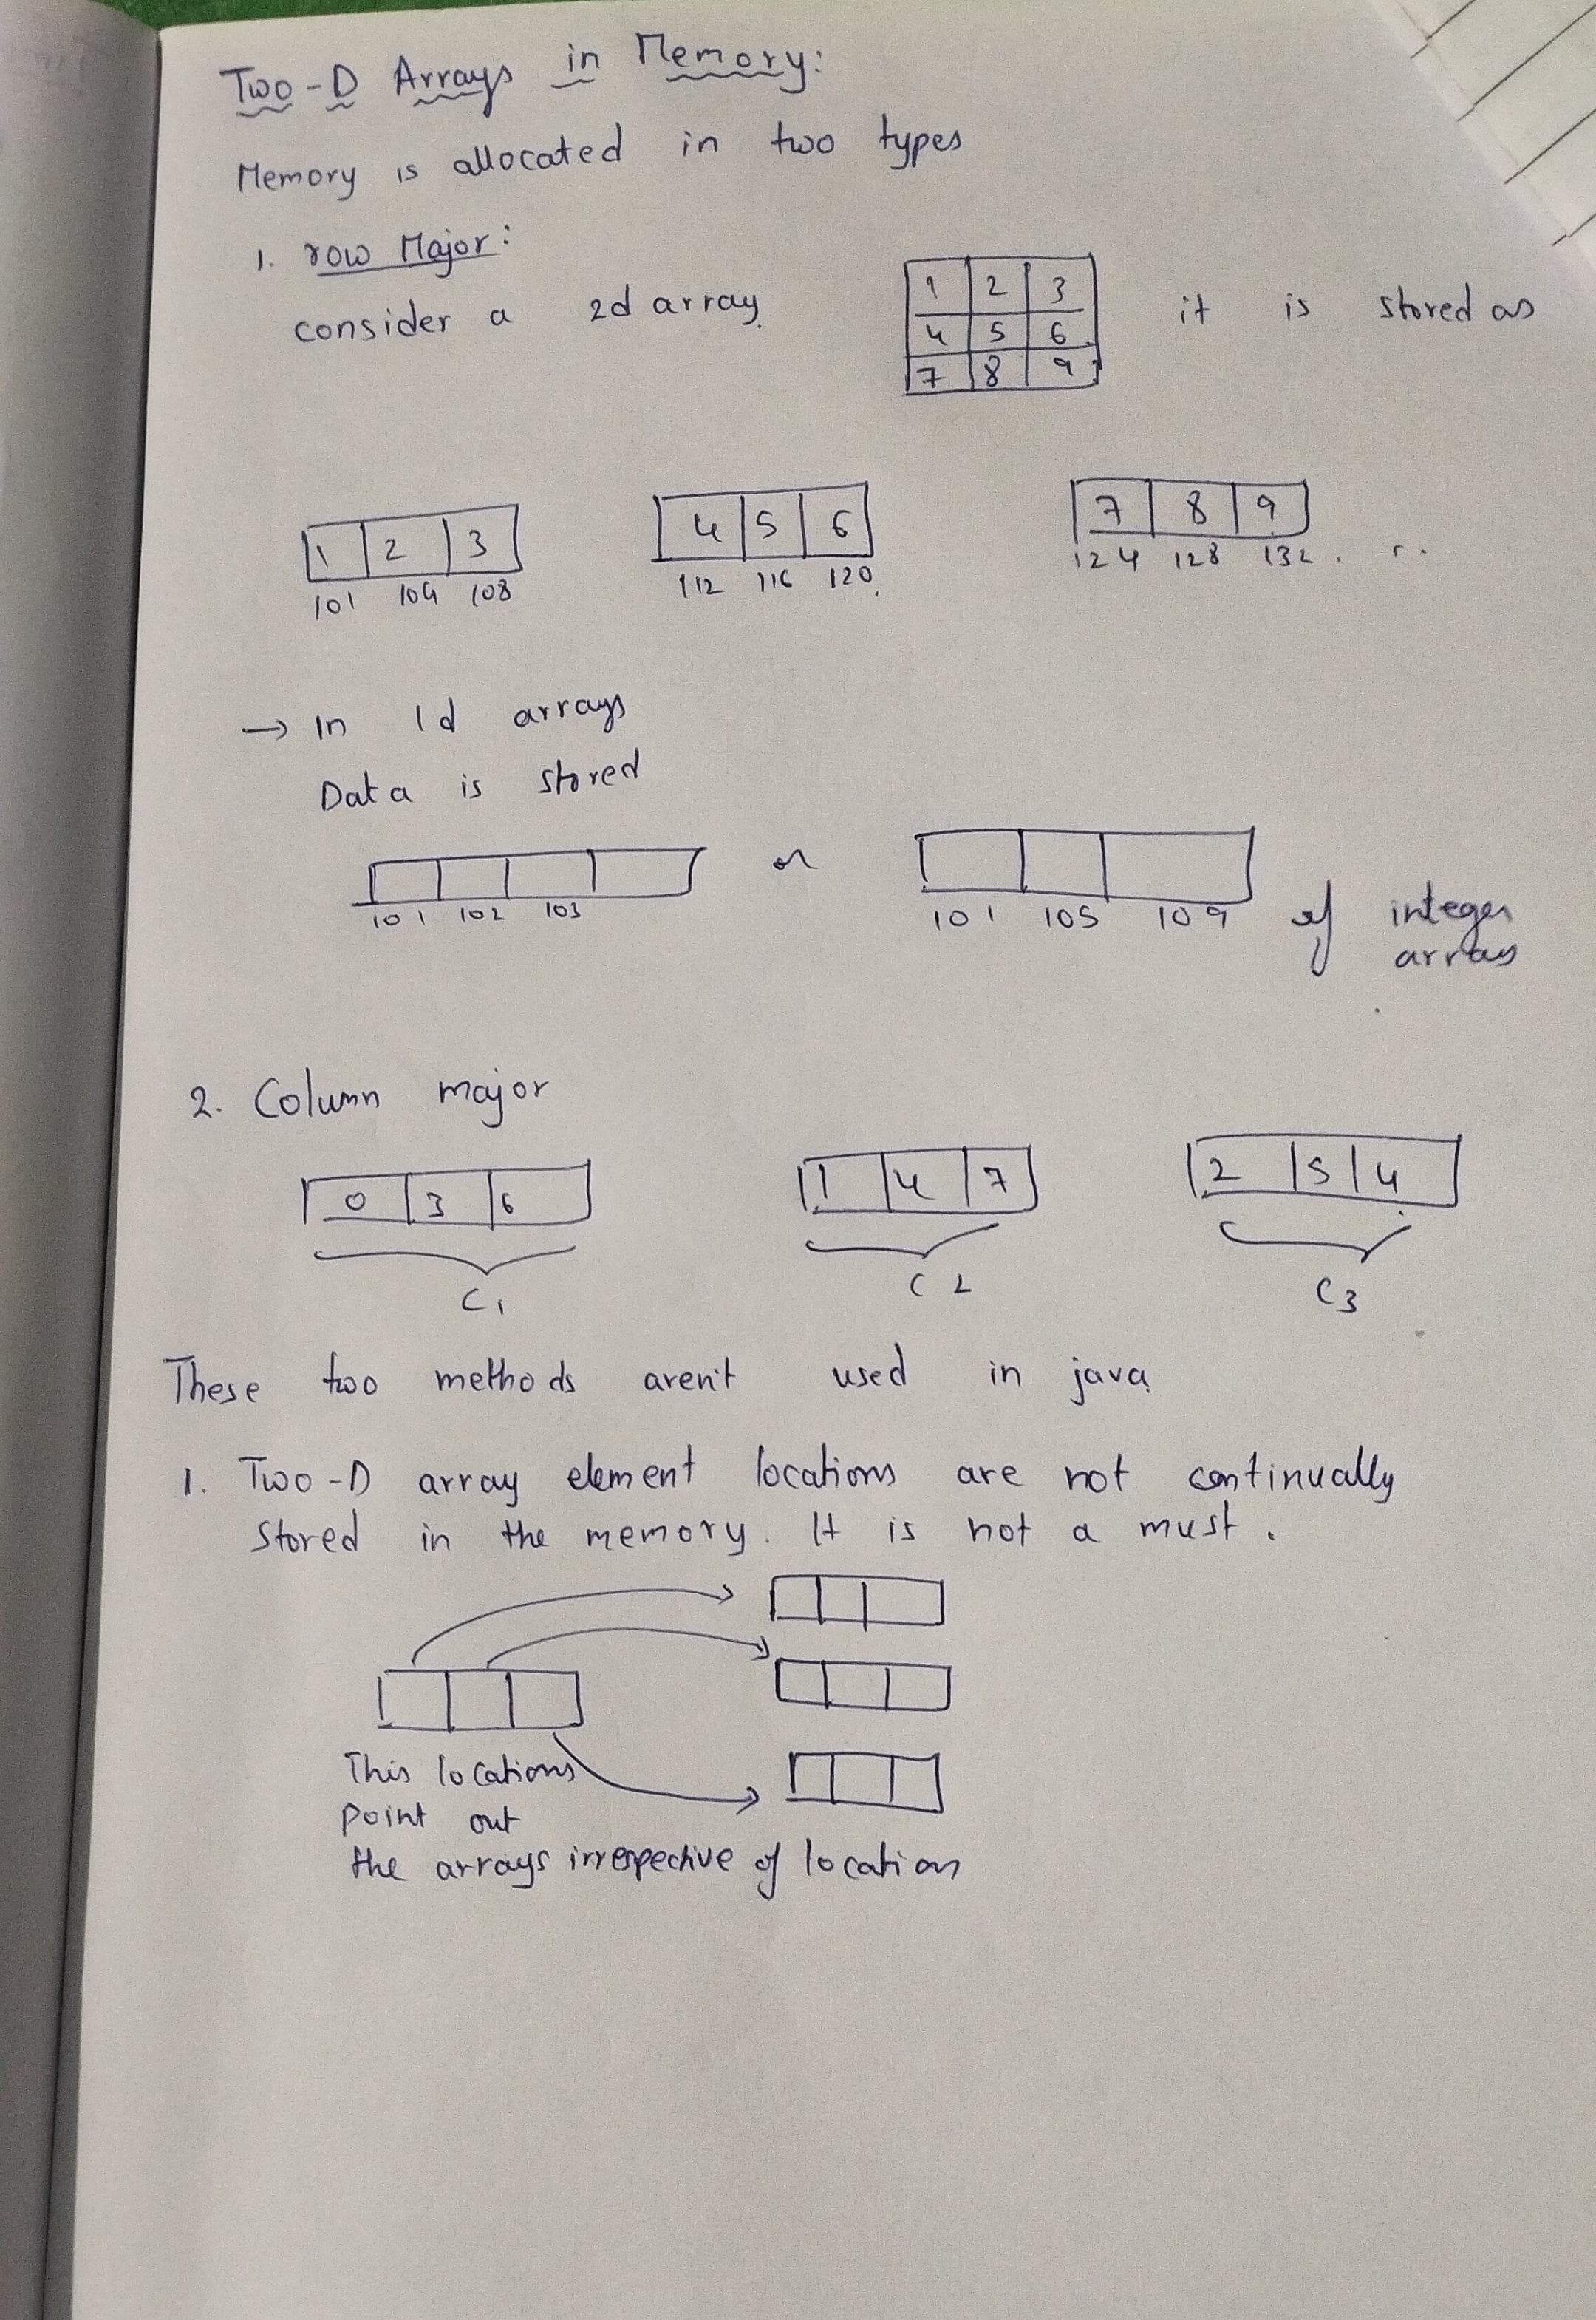 Two-D Arrays in Memory:
Memory is allocated in two types
1. row Major:
consider a 2d array it is stored as
1 2 3
4 5 6
7 8 9
1 2 3 4 5 6 7 8 9
101 104 108 112 116 120 124 128 132
→ In 1d arrays
Data is stored
or
101 102 103 101 105 109 of integer
arrays
2. Column major
0 3 6 1 4 7 2 5 4
C1 C2 C3
These two methods aren't used in java
1. Two-D array element locations are not continually
stored in the memory. It is not a must.
This locations
point out
the arrays irrespective of location